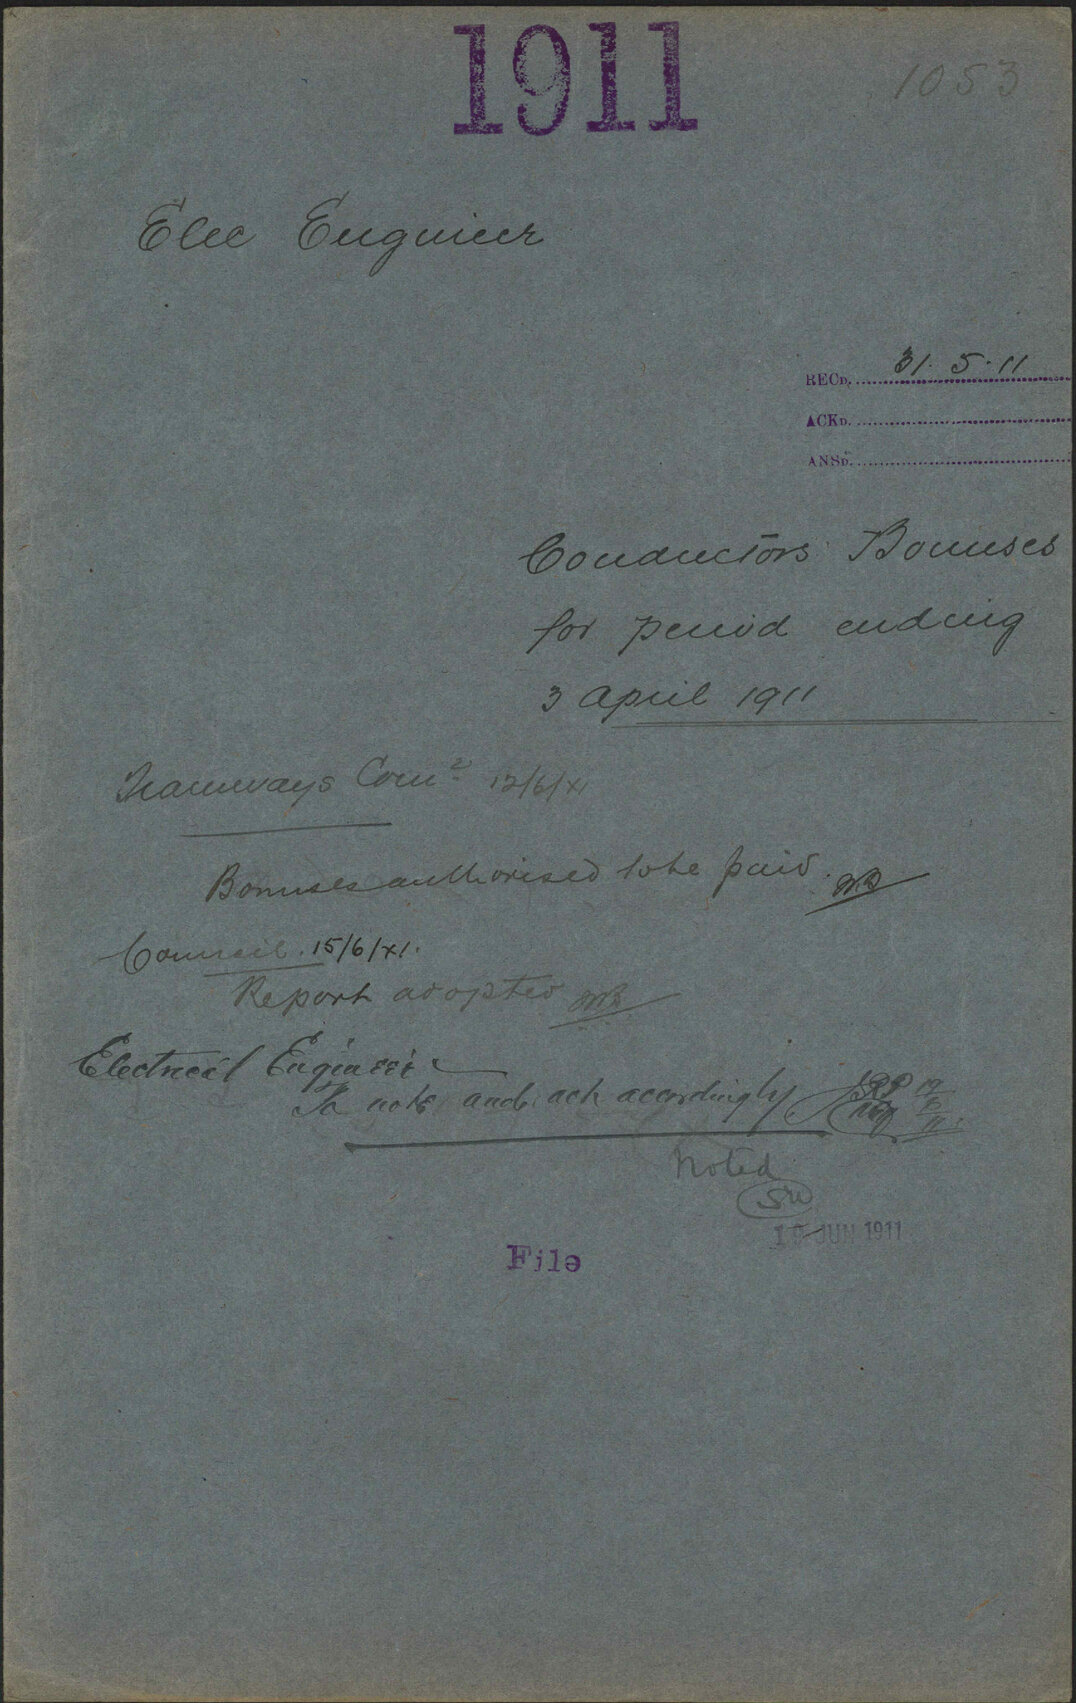 1911
1053
Elec Engineer
RECD. 31.5.11
ACKD.
ANSD.
Conductors Bonuses
for period ending
3 April 1911
Tramways Comᵉ 12/6/XI
Bonuses authorised to be paid.
Council. 15/6/XI.
Report adopted
Electrical Engineer
To note and act accordingly
Noted
JUN 1911
File